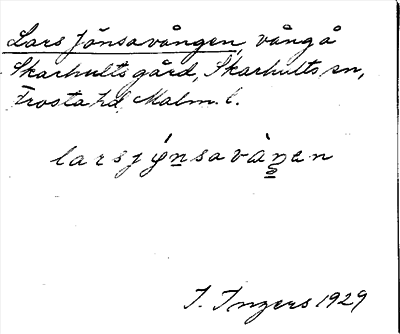 Lars Jönsavången, vång å
Skarhults gård, Skarhults sn,
Frosta hd, Malm. l.
larsjǿn̲savàŋ̲en
I. Ingers 1929